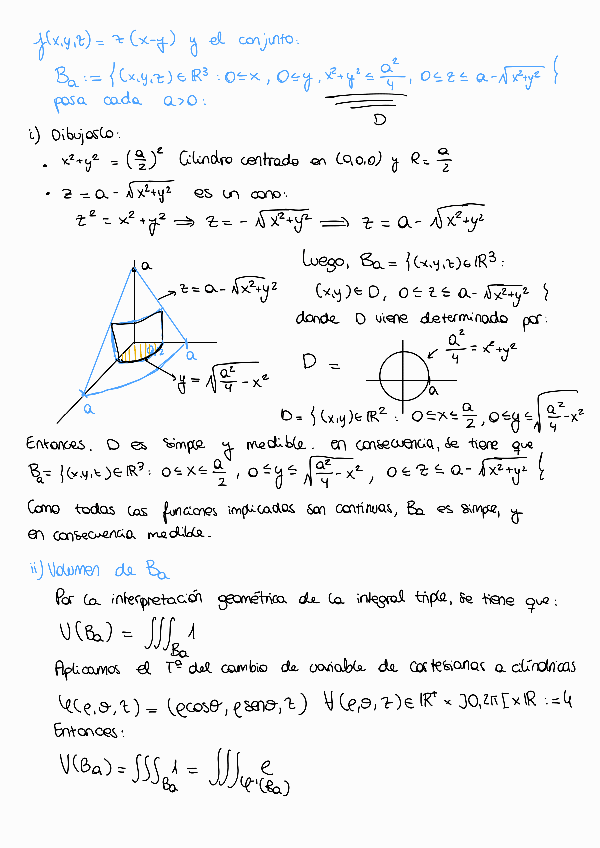 f(x,y,z) = z(x-y) y el conjunto:
Ba := {(x,y,z) ∈ ℝ³ : 0≤x, 0≤y, x²+y² ≤ a²/4, 0≤z≤ a-√x²+y² }
para cada a>0:
D
i) Dibujarlo:
• x²+y² = (a/2)² Cilindro centrado en (0,0,0) y R= a/2
• z = a - √x²+y² es un cono:
z² = x²+y² ⟹ z = -√x²+y² ⟹ z = a - √x²+y²
a
z = a - √x²+y²
a/2
a
a
y = √a²/4 - x²
Luego, Ba = {(x,y,z) ∈ ℝ³:
(x,y) ∈ D, 0≤z≤ a-√x²+y² }
donde D viene determinado por:
D =
a²/4 = x²+y²
a
D = {(x,y) ∈ ℝ² : 0≤x≤ a/2, 0≤y≤ √a²/4 - x²
Entonces, D es simple y medible. en consecuencia, se tiene que
Ba = {(x,y,z) ∈ ℝ³: 0≤x≤ a/2, 0≤y≤ √a²/4 - x², 0≤z≤ a-√x²+y² }
Como todas las funciones implicadas son continuas, Ba es simple, y
en consecuencia medible.
ii) Volumen de Ba
Por la interpretación geométrica de la integral triple, se tiene que:
V(Ba) = ∭Ba 1
Aplicamos el Tº del cambio de variable de cartesianas a cilíndricas
φ(ρ,θ,z) = (ρcosθ, ρsenθ, z) ∀(ρ,θ,z) ∈ ℝ⁺ × ]0,2π[ × ℝ := U
Entonces:
V(Ba) = ∭Ba 1 = ∭φ⁻¹(Ba) ρ